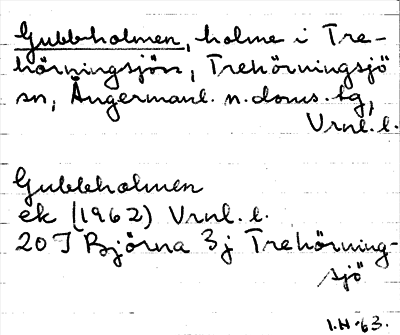 Gubbholmen, holme i Tre-
hörningsjön, Trehörningsjö
sn, Ångermanl. n. doms. tg,
Vrnl. l.
Gubbholmen
ek (1962) Vrnl. l.
20 I Björna 3j Trehörning-
sjö
I.H-63.